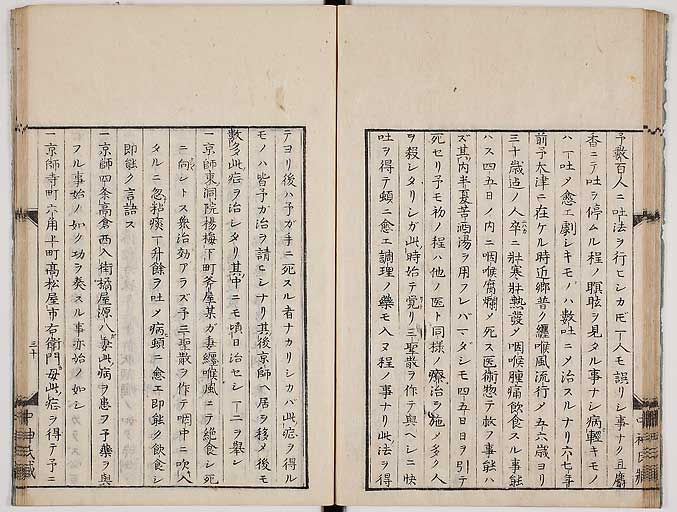 予数百人ニ吐法ヲ行ヒシカ𪜈一人モ誤リシ事ナク且麝
香ニテ吐ヲ停ムル程ノ瞑眩ヲ見タル事ナシ病軽キモノ
ハ一吐メ愈エ劇シキモノハ数吐ニメ治スルナリ六七年
前予大津ニ在ケル時近郷普ク纏喉風流行メ五六歳ヨリ
三十歳迠ノ人卒ニ壮寒壮熱發メ咽喉腫痛飲食スル事能
ハス四五日ノ内ニ咽喉腐爛メ死ス医術惣テ救フ事能ハ
ズ其内半夏苦酒湯ヲ用フレバ一タシモ四五日ヲ引テ
死セリ予モ初ノ程ハ他ノ医ト同様ノ療治ヲ施メ多ク人
ヲ殺シタリシガ此時始テ覚リ三聖散ヲ作テ與ヘシニ快
吐ヲ得テ頓ニ愈エ調理ノ藥モ入ヌ程ノ事ナリ此法ヲ得
テヨリ後ハ予ガ手ニ死スル者ナカリシカバ此症ヲ得ル
モノハ皆予カ治ヲ請ヒシナリ其後京師ヘ居ヲ移メ後モ
數多此症ヲ治シタリ其中ニモ頃日治セシ一二ヲ擧シ
一京師東洞院楊梅下町斧屋某ガ妻纏喉風ニテ絶食シ死
ニ向ントス衆治効アラズ予三聖散ヲ作テ咽中ニ吹入
タルニ忽粘痰一升餘ヲ吐メ病頓ニ愈エ即能ク飲食シ
即能ク言語ス
一京師四条高倉西入街橘屋源八妻此病ヲ患フ予藥ヲ與
フル事始ノ如ク功ヲ奏スル事亦始ノ如シ
一京師寺町六角上町髙松屋市右衛門母此症ヲ得テ予ニ
三十
中神氏藏